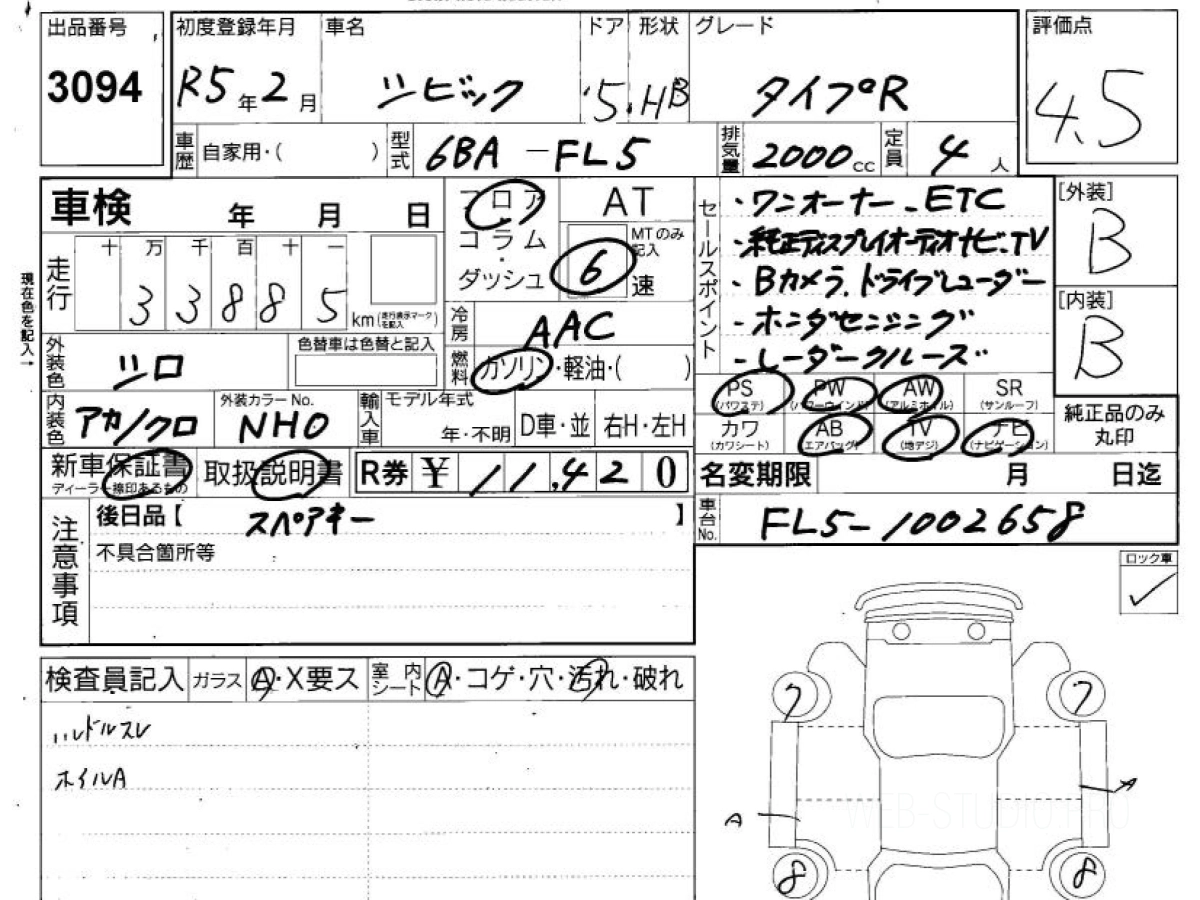 出品番号 初度登録年月 車名 ドア 形状 グレード 評価点
3094 R5年2月 シビック 5 HB タイプR 4.5
車歴 自家用・( ) 型式 6BA-FL5 排気量 2000cc 定員 4人
車検 年 月 日
フロア AT
コラム・ダッシュ 6速 MTのみ記入
セールスポイント
・ワンオーナー、ETC
・純正ディスプレイオーディオナビ、TV
・Bカメラ、ドライブレコーダー
・ホンダセンシング
・レーダークルーズ
[外装]
B
[内装]
B
現在色を記入→
走行 十 万 千 百 十 一
33885 km(走行表示マークを記入)
冷房 AAC
外装色 シロ 色替車は色替と記入
燃料 ガソリン・軽油・( )
PS(パワステ) PW(パワーウインド) AW(アルミホイル) SR(サンルーフ)
カワ(カワシート) AB(エアバッグ) TV(地デジ) ナビ(ナビゲーション)
純正品のみ丸印
内装色 アカ/クロ 外装カラーNo. NH0
輸入車 モデル年式 年・不明 D車・並 右H・左H
新車保証書 ディーラー捺印あるもの 取扱説明書 R券 ¥ 11,420
名変期限 月 日迄
注意事項 後日品【 スペアキー 】
車台No. FL5-1002658
不具合箇所等
ロック車
検査員記入 ガラス A・X要ス 室内シート A・コゲ・穴・汚れ・破れ
ハンドルスレ
ホイルA
7 7
A A
WEB-STUDIO.PRO
8 8